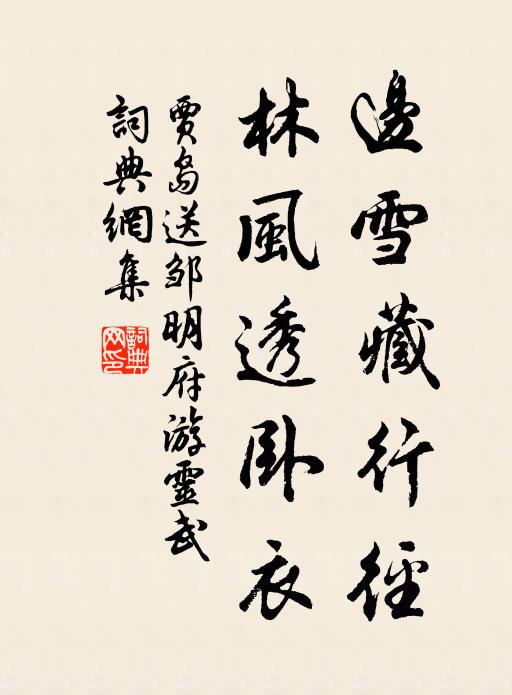 邊雪藏行徑
林風透卧衣
賈島送邹明府游靈武
詞典網集
詞典网印